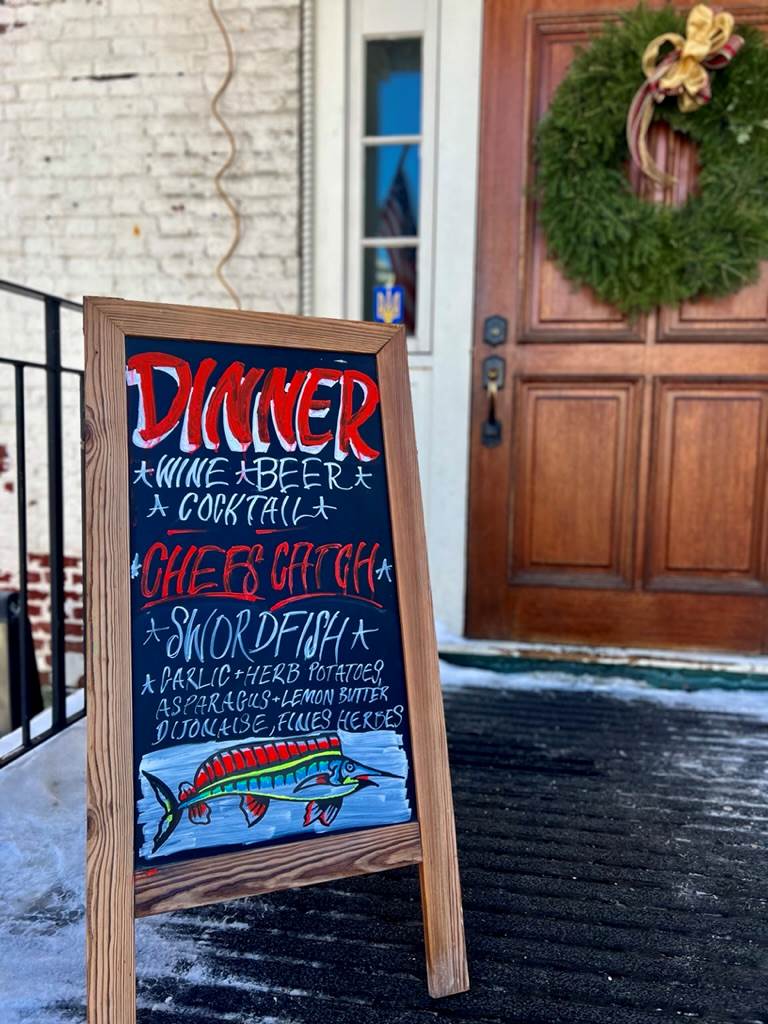 DINNER
*WINE *BEER*
* COCKTAIL*
*CHEFS CATCH*
*SWORDFISH*
*GARLIC + HERB POTATOES,
ASPARAGUS + LEMON BUTTER
DIJONAISE, FINES HERBES